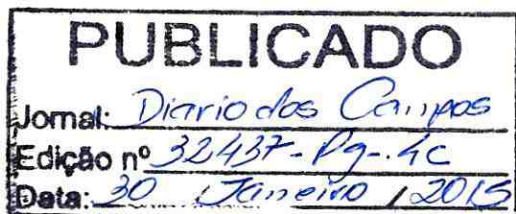 PUBLICADO
Jornal: Diario dos Campos
Edição nº 32437-Pg-.4C
Data: 30 Janeiro / 2015